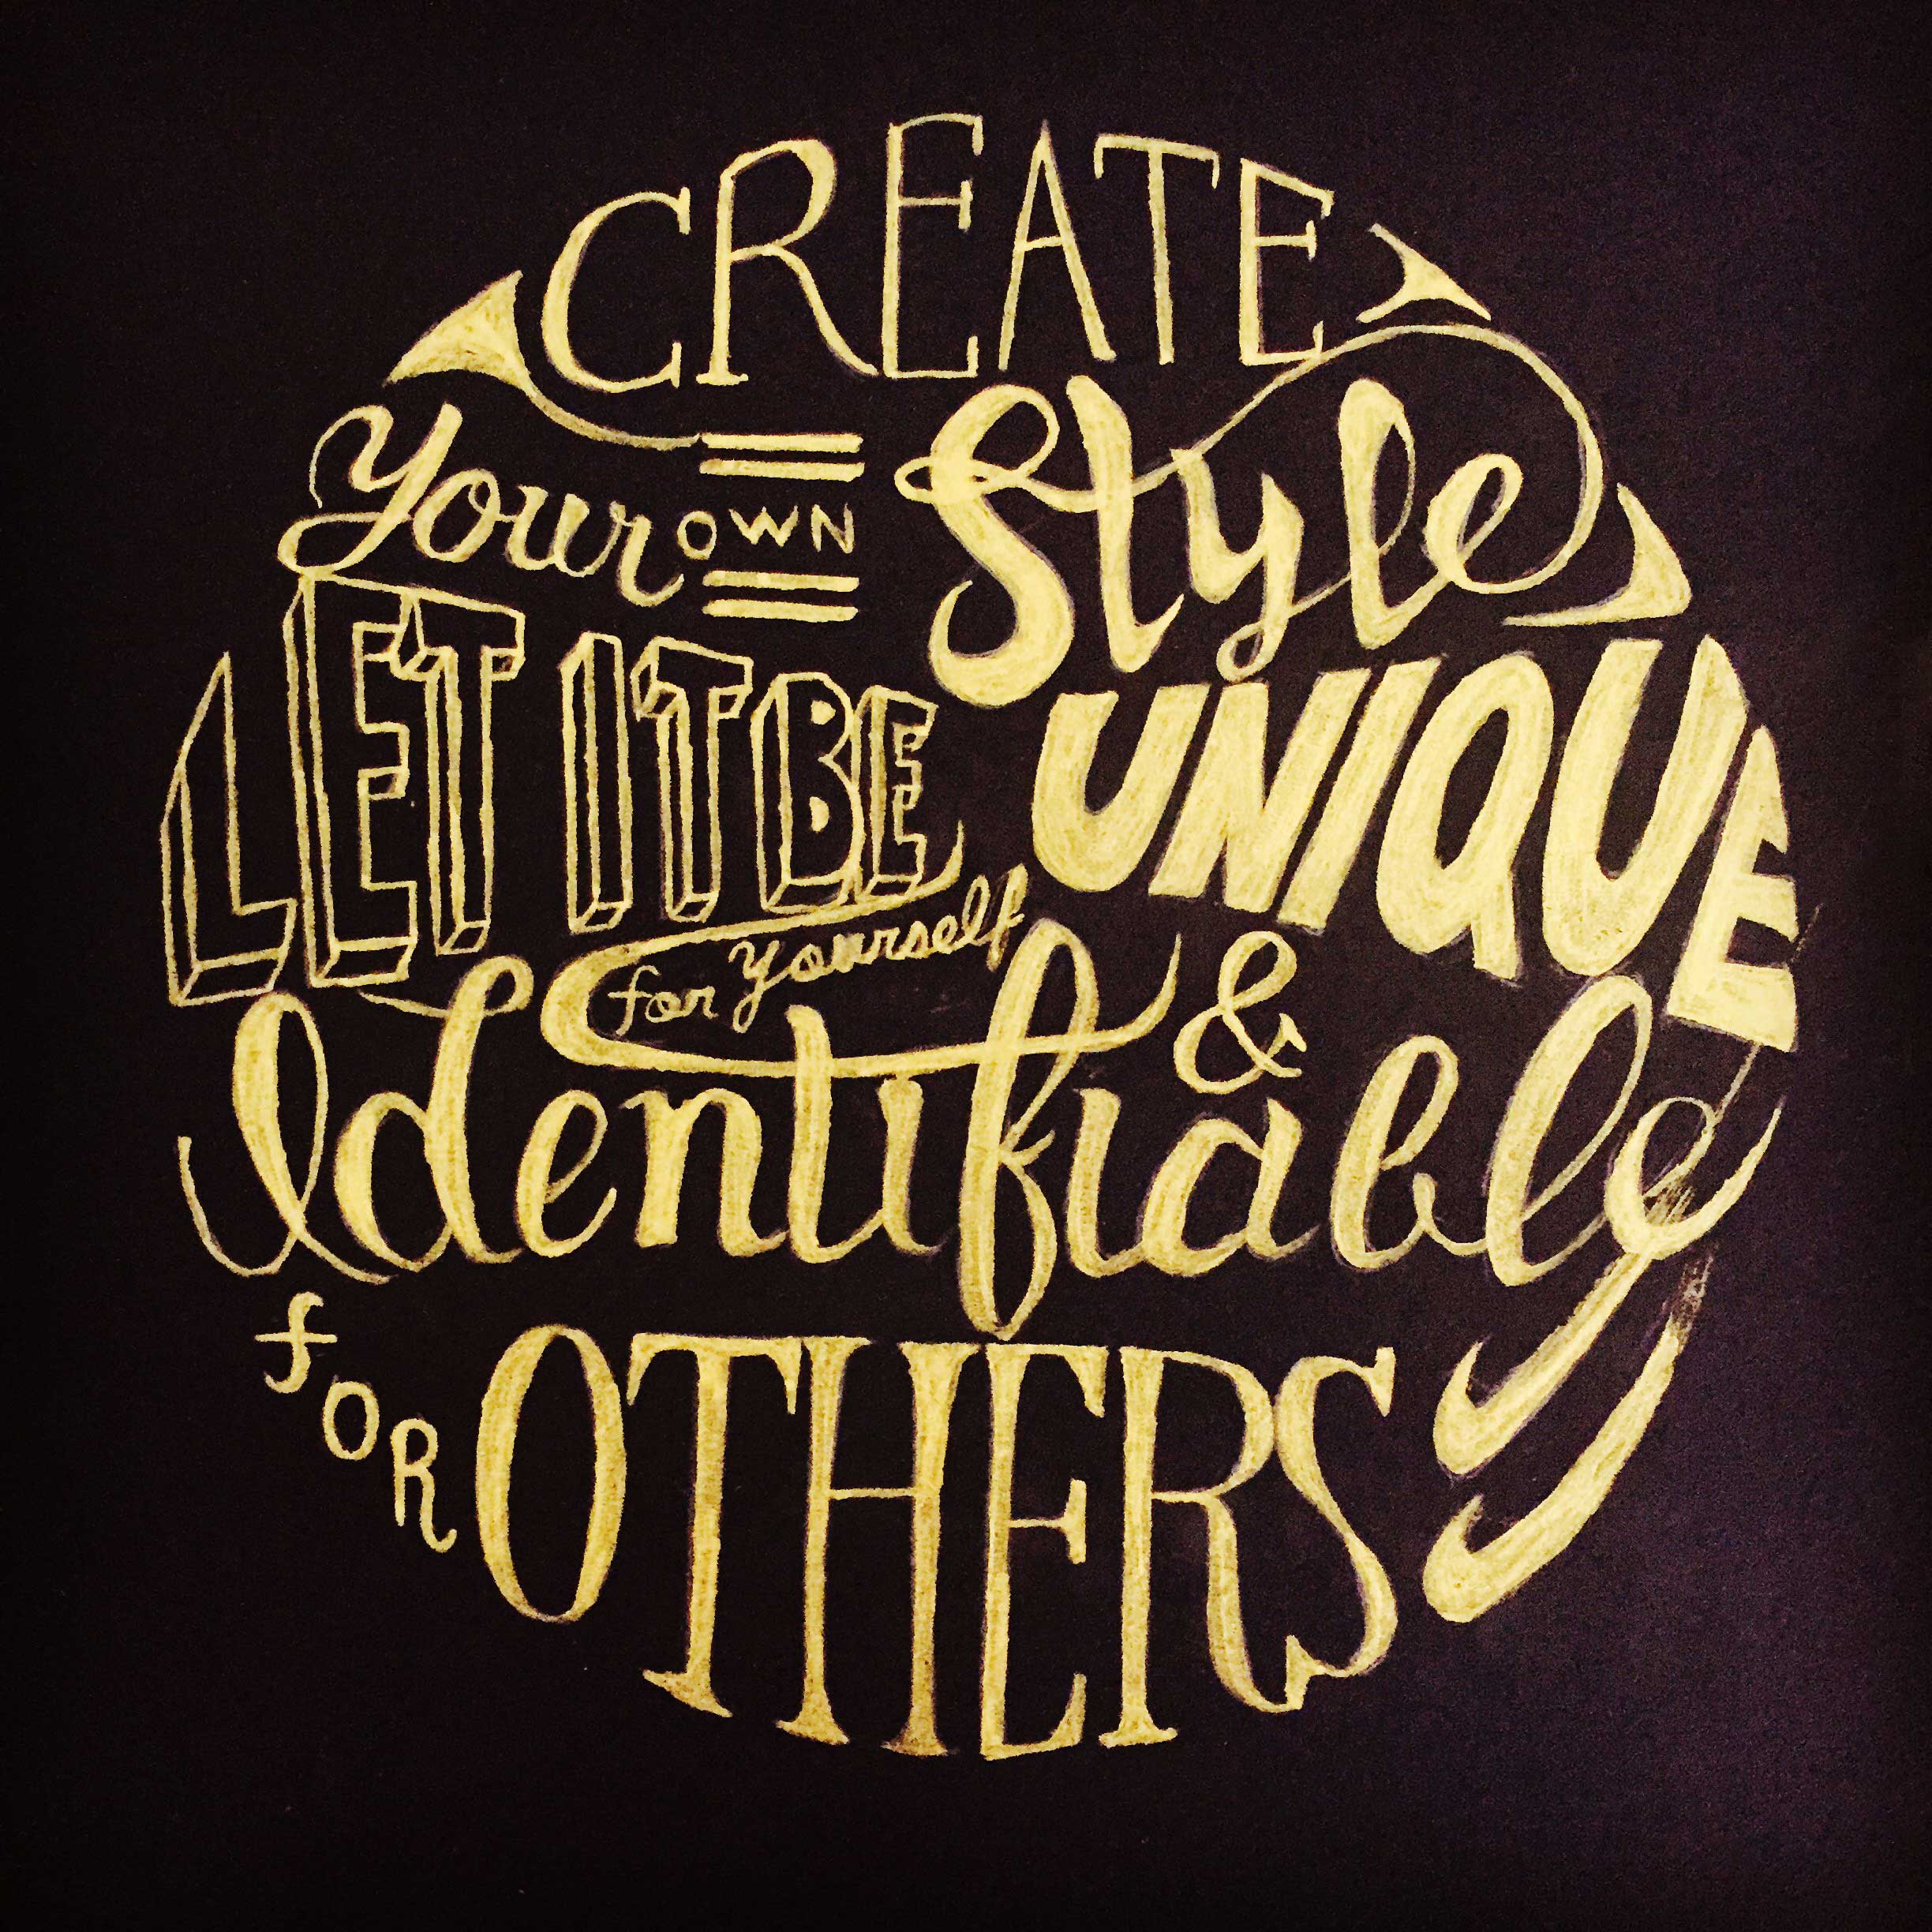 CREATE
Your OWN Style
LET IT BE UNIQUE
for yourself &
Identifiable
for OTHERS